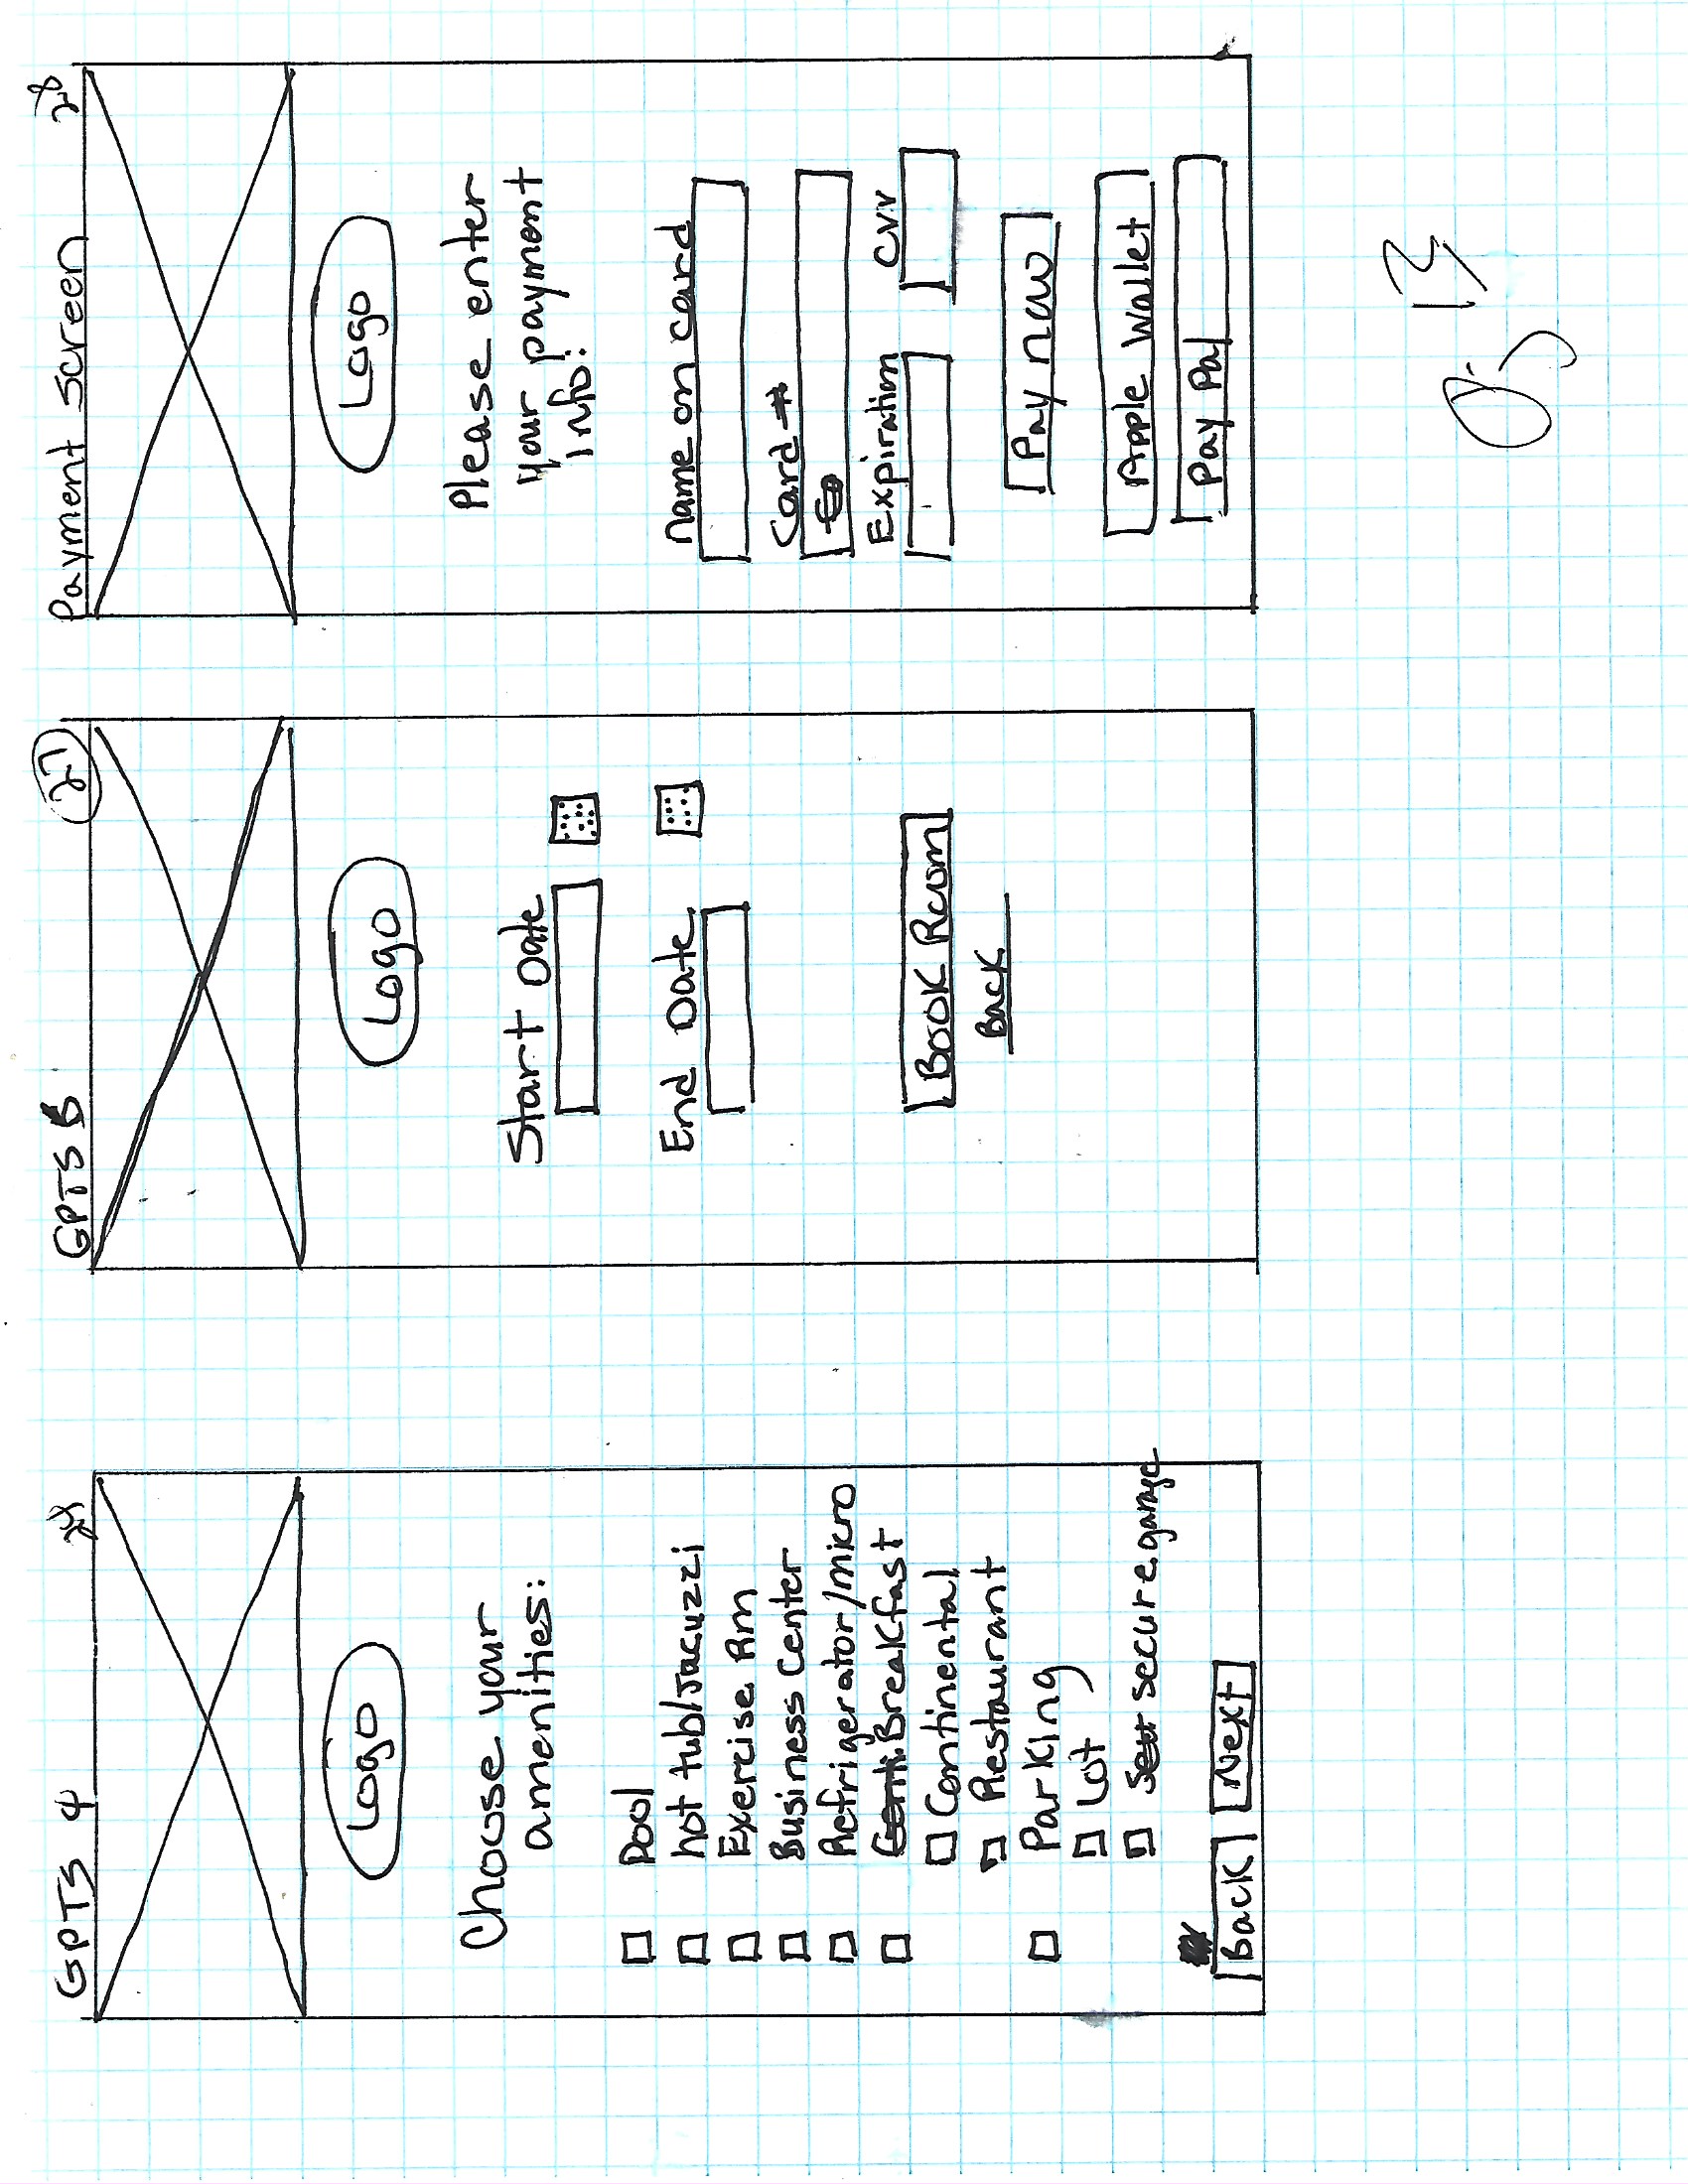 GPTS 4
Logo
Choose your
amenities:
Pool
hot tub/Jacuzzi
Exercise Rm
Business Center
Refrigerator/micro
Breakfast
Continental
Restaurant
Parking
Lot
secure garage
Back
Next
GPTS 5
27
Logo
Start Date
End Date
Book Room
Back
Payment Screen
28
Logo
Please enter
your payment
info:
name on card
Card #
Expiration
CVV
Pay now
Apple Wallet
Pay Pal